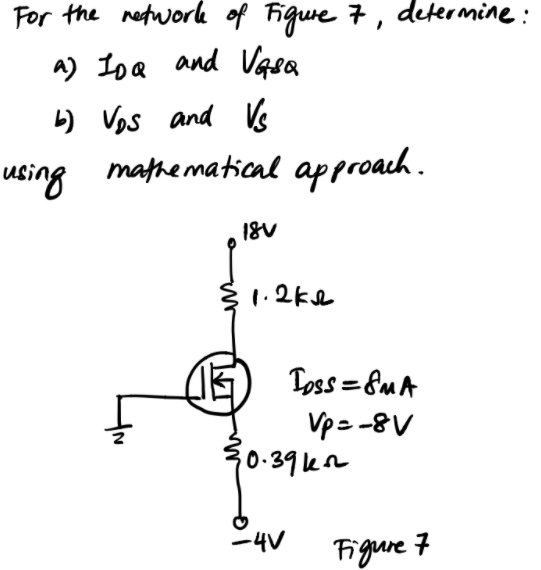 For the network of Figure 7, determine:
a) IDQ and VGSQ
b) VDS and VS
using mathematical approach.
18V
1.2kΩ
IDSS = 8mA
Vp = -8V
0.39kΩ
-4V
Figure 7